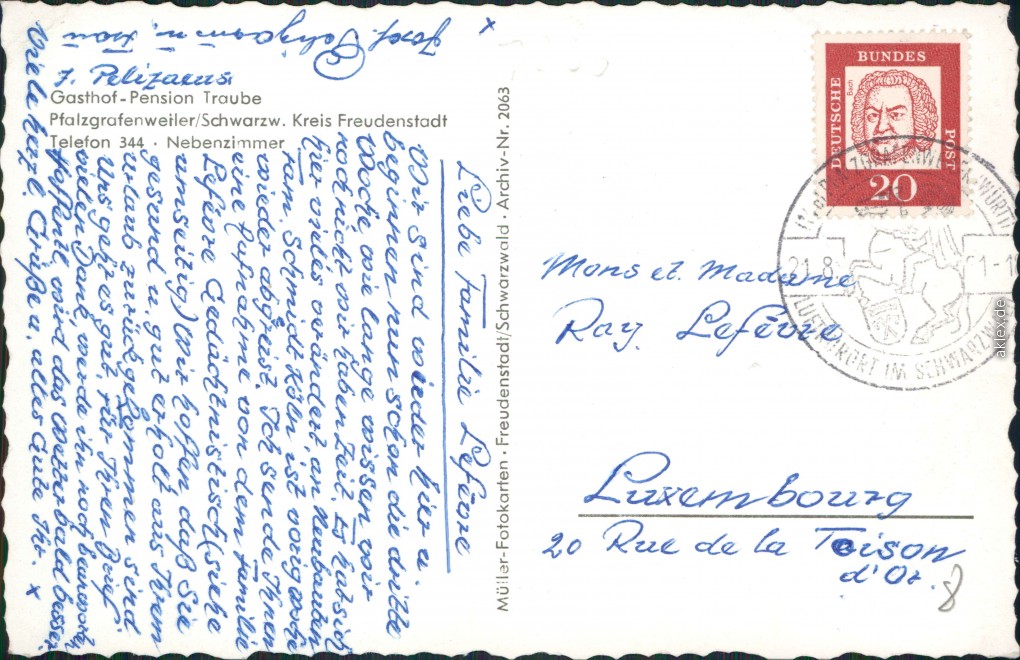 Gasthof-Pension Traube
Pfalzgrafenweiler/Schwarzw. Kreis Freudenstadt
Telefon 344 · Nebenzimmer
Müller-Fotokarten · Freudenstadt/Schwarzwald · Archiv-Nr. 2063
Liebe Familie Lefèvre
Wir sind wieder hier u.
beginnen nun schon die dritte
Woche, wie lange wissen wir
noch nicht wir haben Zeit. Es hat sich
hier vieles verändert, an Neubauten
ram. Schmidt Köln ist vorig. Woche
wieder abgereist. Ich sende Ihnen
eine Aufnahme von dem Familie
Lefèvre Gedächtnistisch (siehe
umseitig) Wir hoffen, daß Sie
gesund u. gut erholt aus Ihrem
Urlaub zurückgekommen sind.
Uns geht es gut. Für Ihren Brief
vielen Dank, werde ihn noch beantworten
Hoffentl. wird das Wetter bald besser.
Viele herzl. Grüße u. alles Gute Ihr. x
x Josef u. Frau
J. Pelizaeus
DEUTSCHE
BUNDES
POST
Bach
20
21.8.
LUFTKURORT IM SCHWARZW
Mons et. Madame
Ray. Lefèvre
Luxembourg
20 Rue de la Toison
d'Or.
8
aklex.de